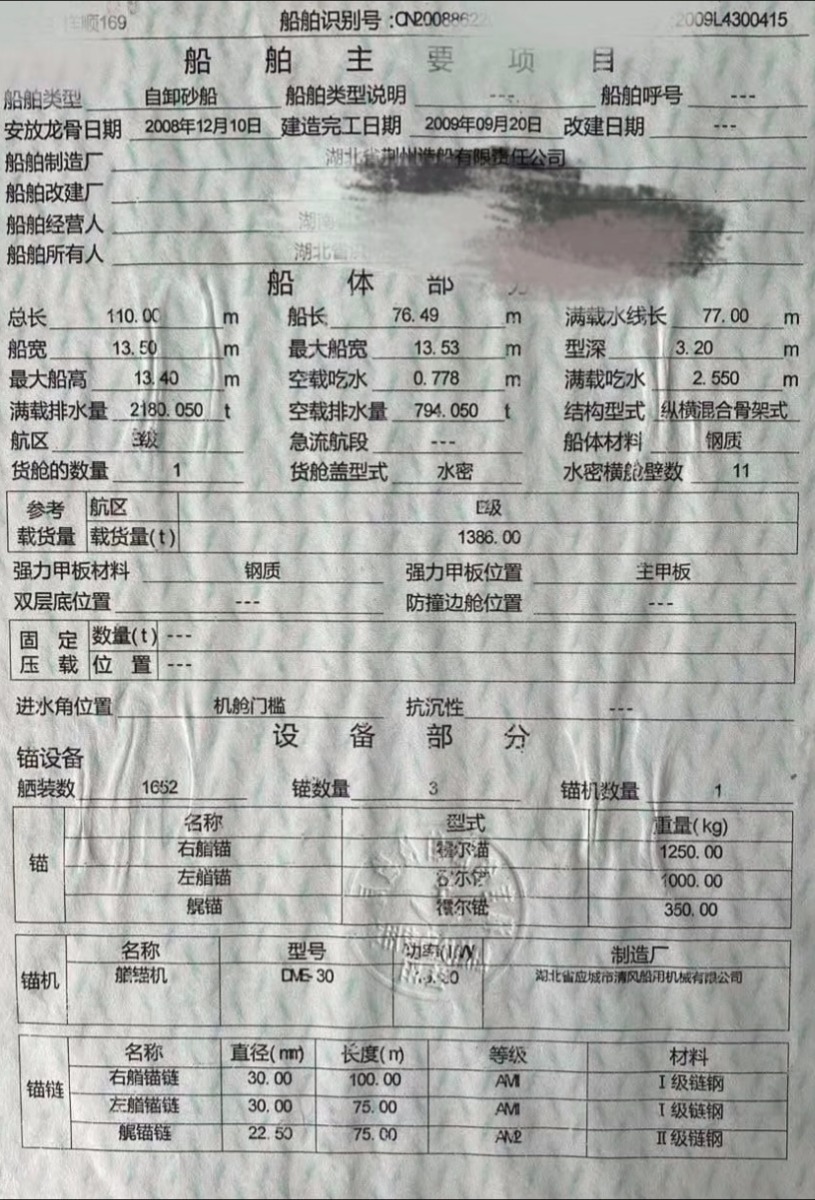 顺169 船舶识别号:CN20088622 2009L4300415
船舶主要项目
船舶类型 自卸砂船 船舶类型说明 --- 船舶呼号 ---
安放龙骨日期 2008年12月10日 建造完工日期 2009年09月20日 改建日期 ---
船舶制造厂 湖北省荆州造船有限责任公司
船舶改建厂
船舶经营人 湖南
船舶所有人 湖北省
船体部分
总长 110.00 m 船长 76.49 m 满载水线长 77.00 m
船宽 13.50 m 最大船宽 13.53 m 型深 3.20 m
最大船高 13.40 m 空载吃水 0.778 m 满载吃水 2.550 m
满载排水量 2180.050 t 空载排水量 794.050 t 结构型式 纵横混合骨架式
航区 级 急流航段 --- 船体材料 钢质
货舱的数量 1 货舱盖型式 水密 水密横舱壁数 11
参考 航区 级
载货量 载货量(t) 1386.00
强力甲板材料 钢质 强力甲板位置 主甲板
双层底位置 --- 防撞边舱位置 ---
固定 数量(t) ---
压载 位置 ---
进水角位置 机舱门槛 抗沉性 ---
设备部分
锚设备
舾装数 1652 锚数量 3 锚机数量 1
名称 型式 重量(kg)
锚 右艏锚 霍尔锚 1250.00
左艏锚 霍尔锚 1000.00
艉锚 霍尔锚 350.00
名称 型号 功率(kW) 制造厂
锚机 艏锚机 CME-30 湖北省应城市清风船用机械有限公司
名称 直径(mm) 长度(m) 等级 材料
锚链 右艏锚链 30.00 100.00 AM1 Ⅰ级链钢
左艏锚链 30.00 75.00 AM1 Ⅰ级链钢
艉锚链 22.50 75.00 AM2 Ⅱ级链钢